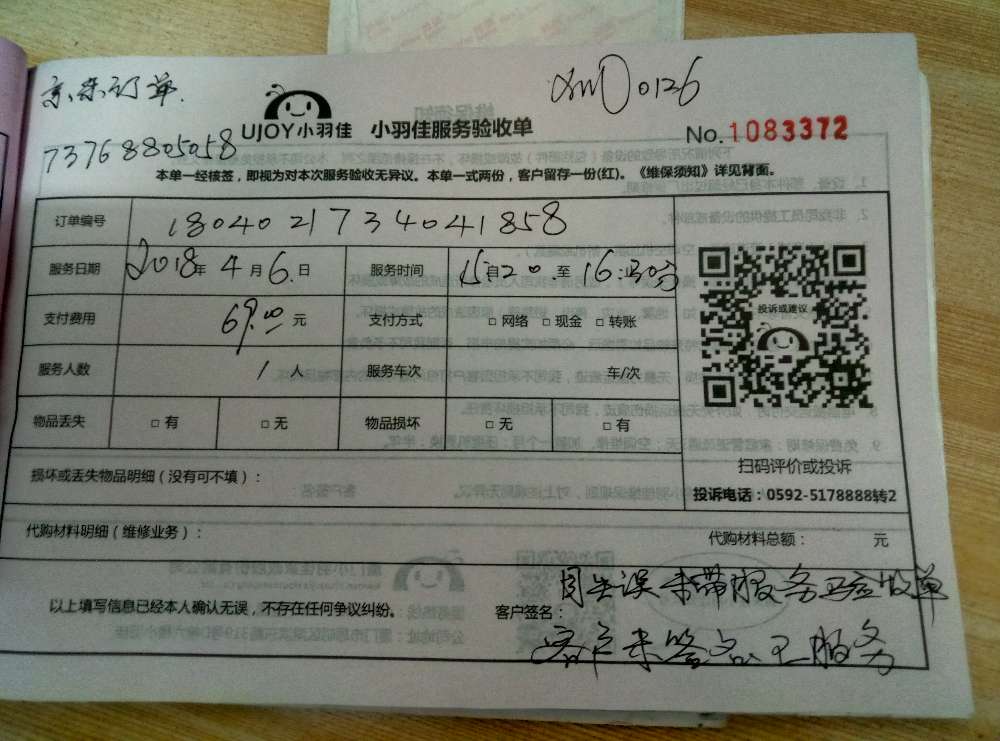 京东订单
0126
73768805058
UJOY小羽佳 小羽佳服务验收单
No.1083372
本单一经核签，即视为对本次服务验收无异议。本单一式两份，客户留存一份(红)。《维保须知》详见背面。
订单编号 1804021734041858
服务日期 2018年4月6日 服务时间 15:20 自 至 16:30分
支付费用 69.00元 支付方式 □ 网络 □ 现金 □ 转账
投诉或建议
服务人数 1人 服务车次 车/次
物品丢失 □ 有 □ 无 物品损坏 □ 无 □ 有
扫码评价或投诉
损坏或丢失物品明细（没有可不填）：
投诉电话：0592-5178888转2
代购材料明细（维修业务）：
代购材料总额： 元
以上填写信息已经本人确认无误，不存在任何争议纠纷。 客户签名： 因失误未带服务验收单
客户未签名已服务